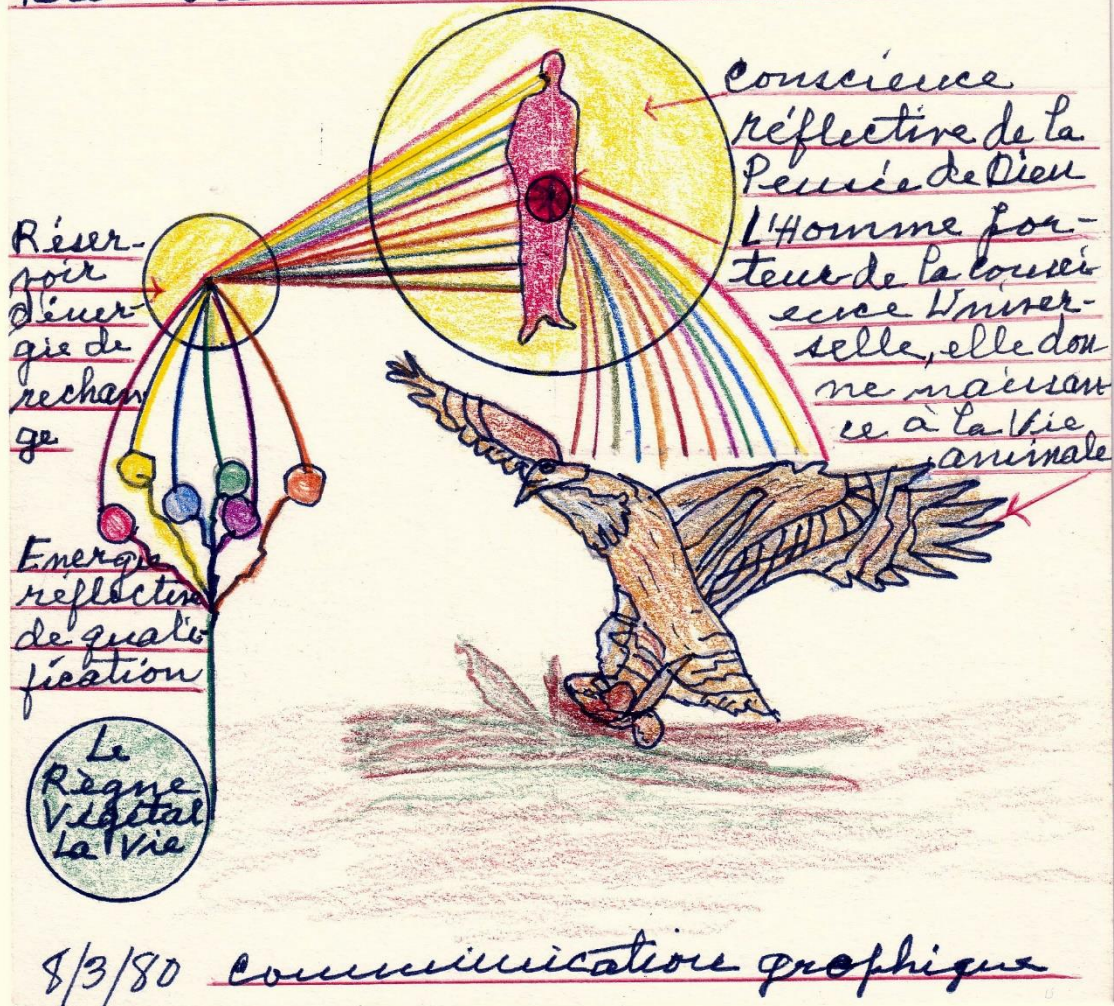 Conscience
réflective de la
Pensée de Dieu
L'Homme por-
teur de la consci-
ence Univer-
selle, elle don
ne naissan
ce à la Vie
animale
Réser-
voir
d'éner-
gie de
rechan
ge
Energie
réflective
de quali-
fication
Le
Règne
Végétal
La Vie
8/3/80 communication graphique